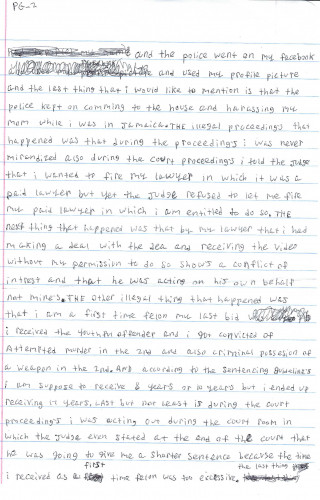 PG-2
and the police went on my facebook
and used my profile picture
and the last thing that i would like to mention is that the
police kept on comming to the house and harassing my
mom while i was in Jamaica. THE illegal proceedings that
happened was that during the proceedings i was never
mirandized also during the court proceedings i told the Judge
that i wanted to fire my lawyer in which it was a
paid lawyer but yet the Judge refused to let me fire
my paid lawyer in which i am entitled to do so. THE
next thing that happened was that by my lawyer that i had
making a deal with the dea and receiving the video
without my permission to do so shows a conflict of
intrest and that he was acting on his own behalf
not mine's. THE other illegal thing that happened was
that i am a first time felon my last bid
i received the youthfn offender and i got convicted of
Attempted murder in the 2nd and also criminal possesion of
a weapon in the 2nd. And according to the sentencing guidelines
i am suppose to receive 8 years or 10 years but i ended up
receiving 17 years. Last but not least is during the court
proceedings i was acting out during the court room in
which the judge even stated at the end of the court that
he was going to give me a shorter sentence because the time
i received as a first time felon was too excessive. the last thing